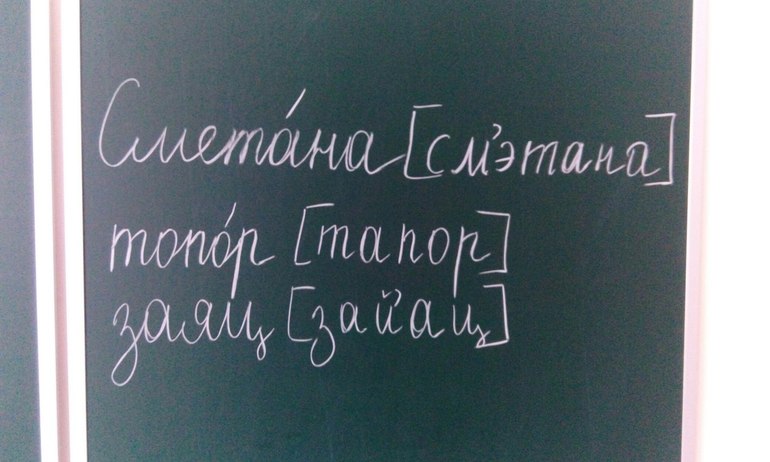 Смета́на [см'этана]
топо́р [тапор]
заяц [зай'ац]